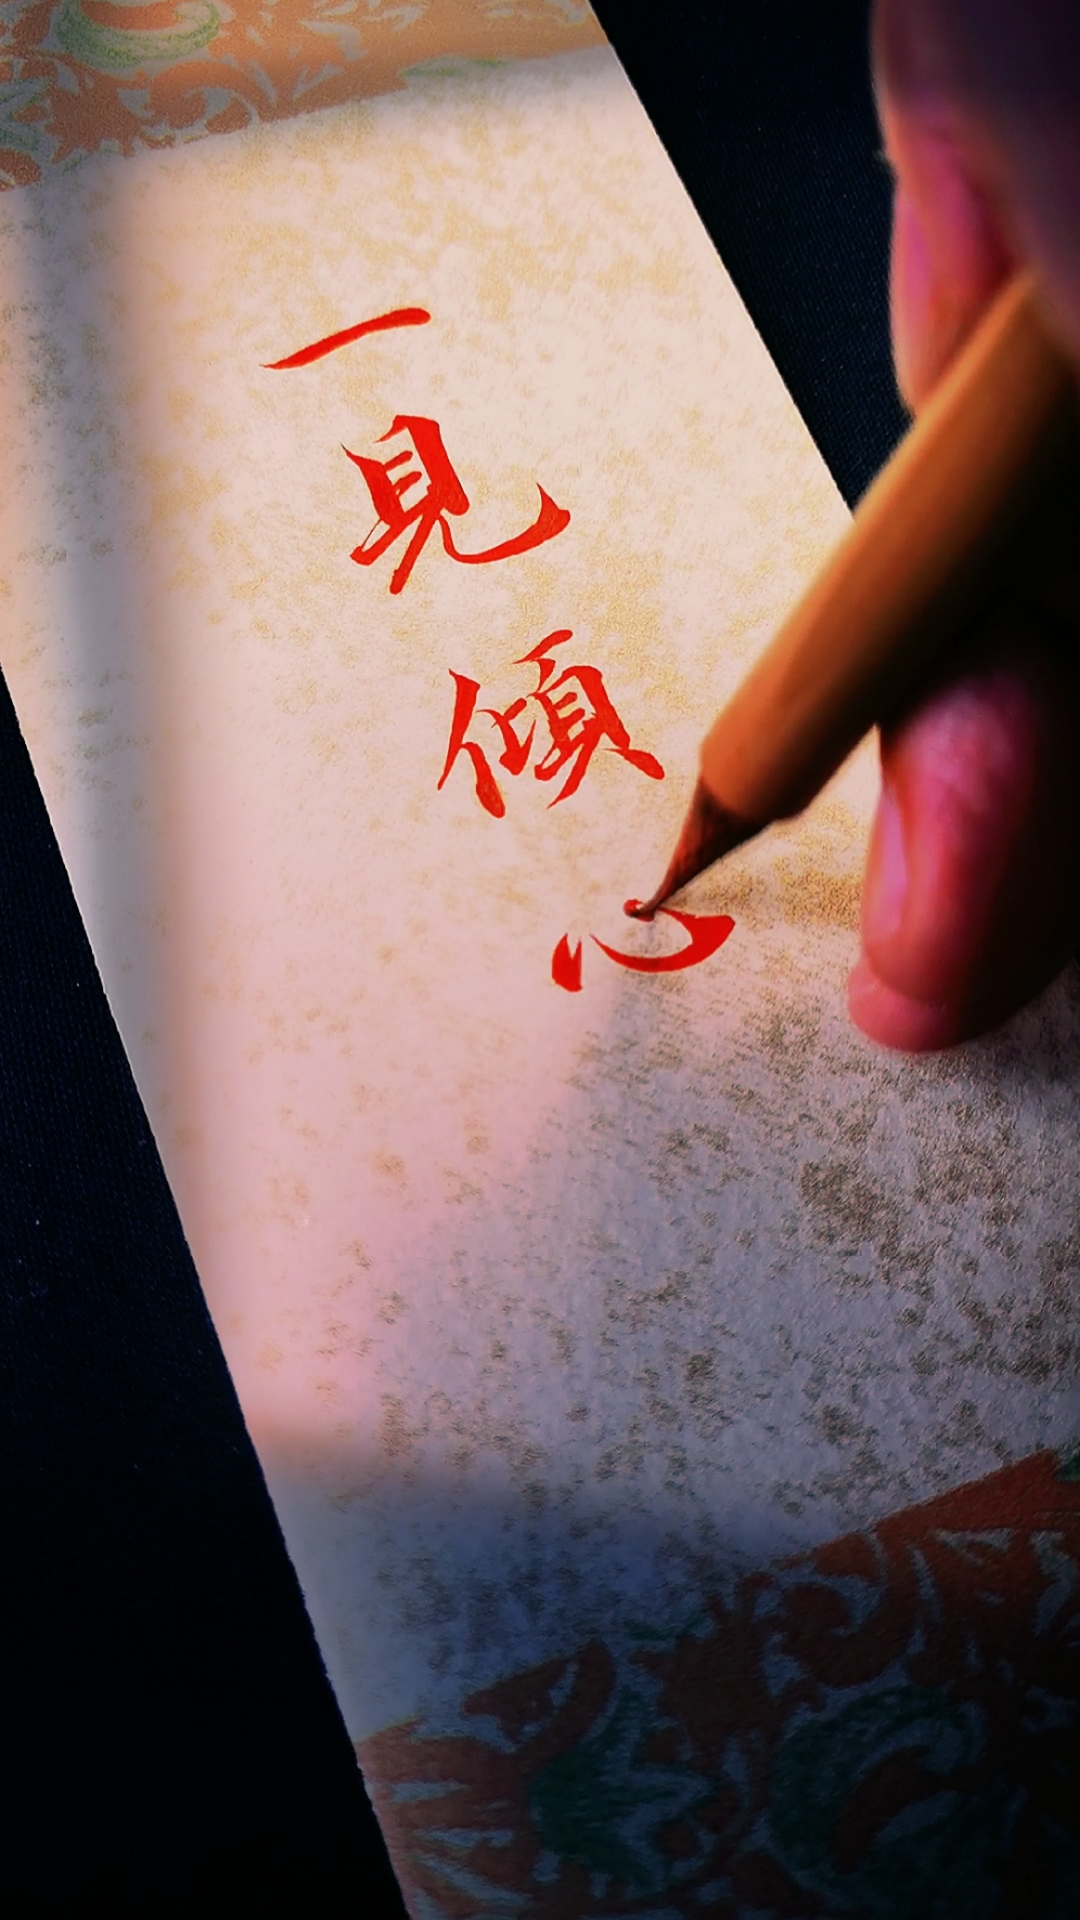 一見傾心